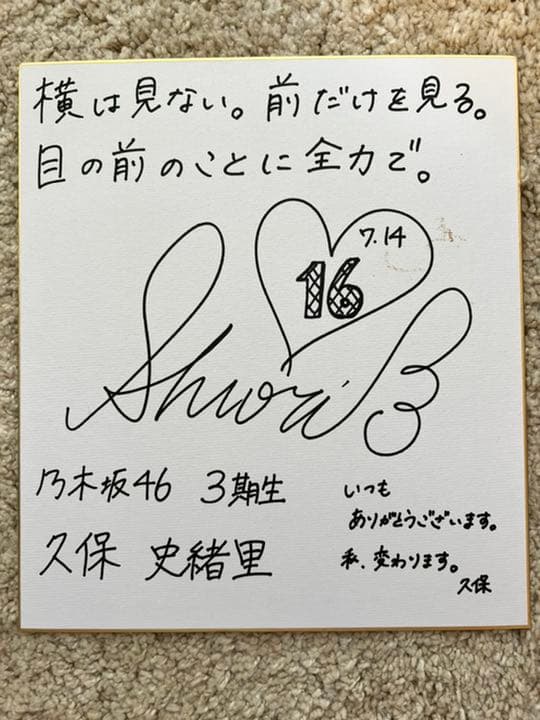 横は見ない。前だけを見る。
目の前のことに全力で。
7.14
16
Shiori
乃木坂46 3期生
久保 史緒里
いつも
ありがとうございます。
私、変わります。
久保